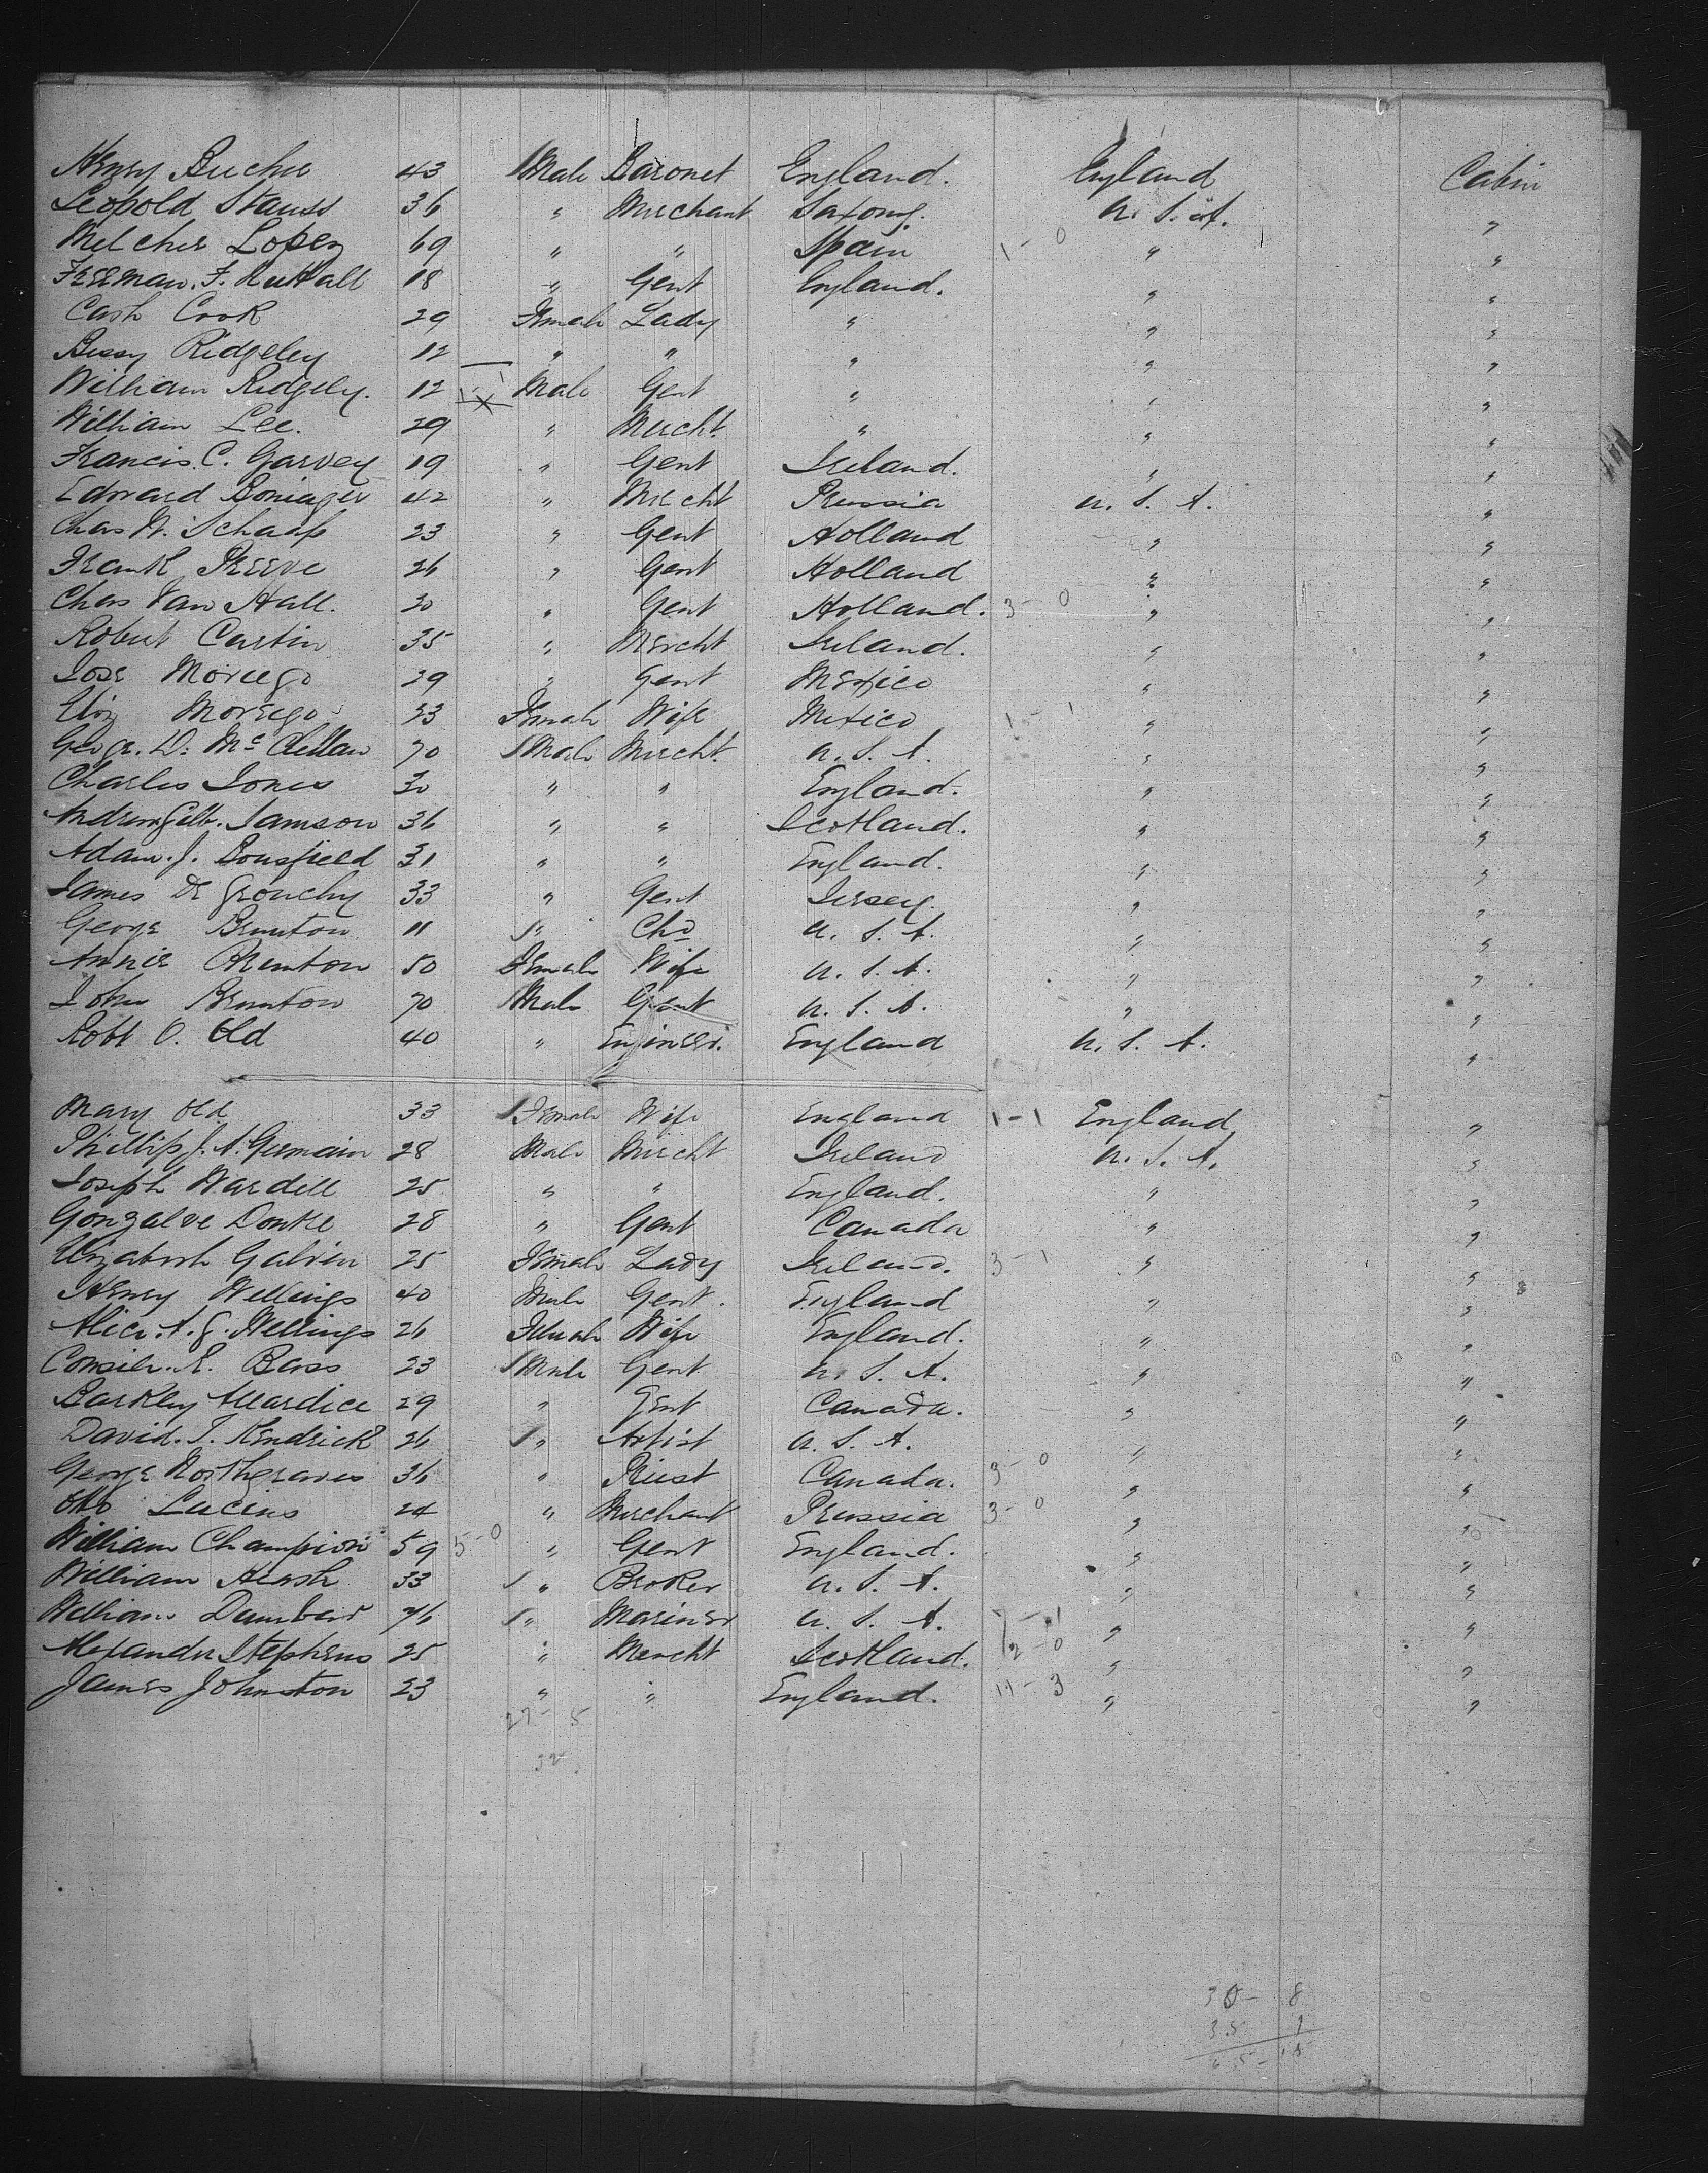 Henry Bucher 43 Male Baronet England. England Cabin
Leopold Stauss 36 " Merchant Saxony. U. S. A. "
Melcher Lopez 69 " " Spain 1-0 " "
Freeman. F. Nuttall 18 " Gent England. " "
Cash Cook 29 Female Lady " " "
Bessy Ridgeley 12 " " " " "
William Ridgely. 12 Male Gent " " "
William Lee. 29 " Mercht. " " "
Francis. C. Garvey 19 " Gent Ireland. " "
Edward 42 " Mercht Prussia U. S. A. "
Chas W. Schaap 23 " Gent Holland " "
Frank Preeve 26 " Gent Holland " "
Chas Van Hall. 30 " Gent Holland. 3-0 " "
Robert Cartin 35 " Mercht Ireland. " "
Jose 29 " Gent Mexico " "
Eliz 23 Female Wife Mexico 1-1 " "
George. D. McClellan 70 Male Mercht. U. S. A. " "
Charles Jones 30 " " England. " "
Andrew Galb. Jamson 36 " " Scotland. " "
Adam. J. Bousfield 31 " " England. " "
James De Grouchy 33 " Gent Jersey. " "
George Brunton 11 " Chd U. S. A. " "
Annie Brunton 50 Female Wife U. S. A. " "
John Brunton 70 Male Gent U. S. A. " "
Robt O. Old 40 " Engineer. England U. S. A. "
Mary Old 33 Female Wife England 1-1 England "
Phillip J. A. Germain 28 Male Mercht Ireland U. S. A. "
Joseph Wardell 25 " " England. " "
Gonzalve Doutre 28 " Gent Canada " "
Elizabeth Galvin 25 Female Lady Ireland. 3-1 " "
Henry Wellings 40 Male Gent. England " "
Alice. A. G. Wellings 26 Female Wife England. " "
E. Bass 23 Male Gent U. S. A. " "
Barkley Allardice 29 " Gent Canada. " "
David. T. Kendrick 26 " Artist U. S. A. " "
George Northgraves 36 " Priest Canada. 3-0 " "
Otto Lucius 24 " Merchant Prussia 3-0 " "
William Champion 59 5-0 " Gent England. " "
William 33 " Broker U. S. A. " "
William Dunbar 46 " Mariner U. S. A. 7-1 " "
Alexander Stephens 25 " Mercht Scotland. 12-0 " "
James Johnston 23 " " England. 11-3 " "
27-5
32
30-8
35 7
65-15